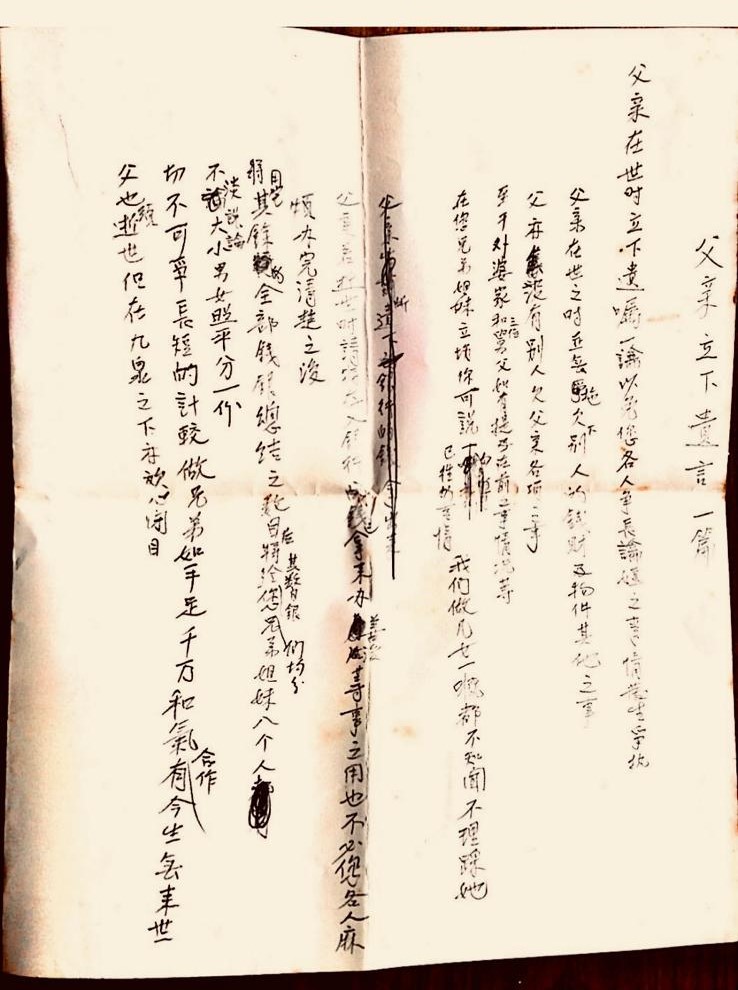 父亲立下遺言一篇
父亲在世时立下遺嘱一論以免您各人爭長論短之事情發生爭执
父亲在世之时並無拖欠下别人的錢財及物件其他之事
父亦沒有别人欠父亲各項之事
至于外婆家和三位舅父如有提及在前之事情況等
在您兄弟姐妹立塲你可說
已往的事情 我們做儿女一概都不知闻不理踩她
父親
入銀行 錢拿来办 等事之用也不必您各人麻
煩 办完清楚之後
用宅
將其餘的全部錢銀總结之数目 後其數目銀
輯给您兄弟姐妹八个人 们均分
不談說論大小男女照平分一份
切不可爭長短的計較 做兄弟如手足千万和氣合作 有今生無来世
父也 逝世但在九泉之下亦放心闭目